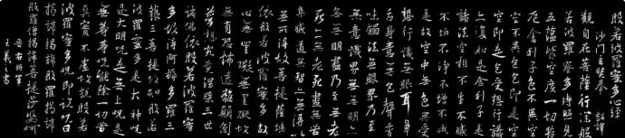 般若波羅蜜多心經
沙門玄奘奉 詔譯
觀自在菩薩行深般
若波羅蜜多時照見
五蘊皆空度一切苦
厄舍利子色不異空
空不異色色即是空
空即是色受想行識
亦復如是舍利子是
諸法空相不生不滅
不垢不淨不增不減
是故空中無色無受
想行識無眼耳鼻
舌身意無色聲香
味觸法無眼界乃至
無意識界無無明亦
無無明盡乃至無老
死亦無老死盡無苦
集滅道無智亦無得
以無所得故菩提薩埵
依般若波羅蜜多故
心無罣礙無罣礙故
無有恐怖遠離顛倒
夢想究竟涅槃三世
諸佛依般若波羅蜜
多故得阿耨多羅三
藐三菩提故知般若
波羅蜜多是大神咒
是大明咒是無上咒是
無等等咒能除一切苦
真實不虛故說般若
波羅蜜多咒即說咒曰
揭諦揭諦般羅揭諦
般羅僧揭諦菩提莎婆訶
晉右將軍
王羲之書